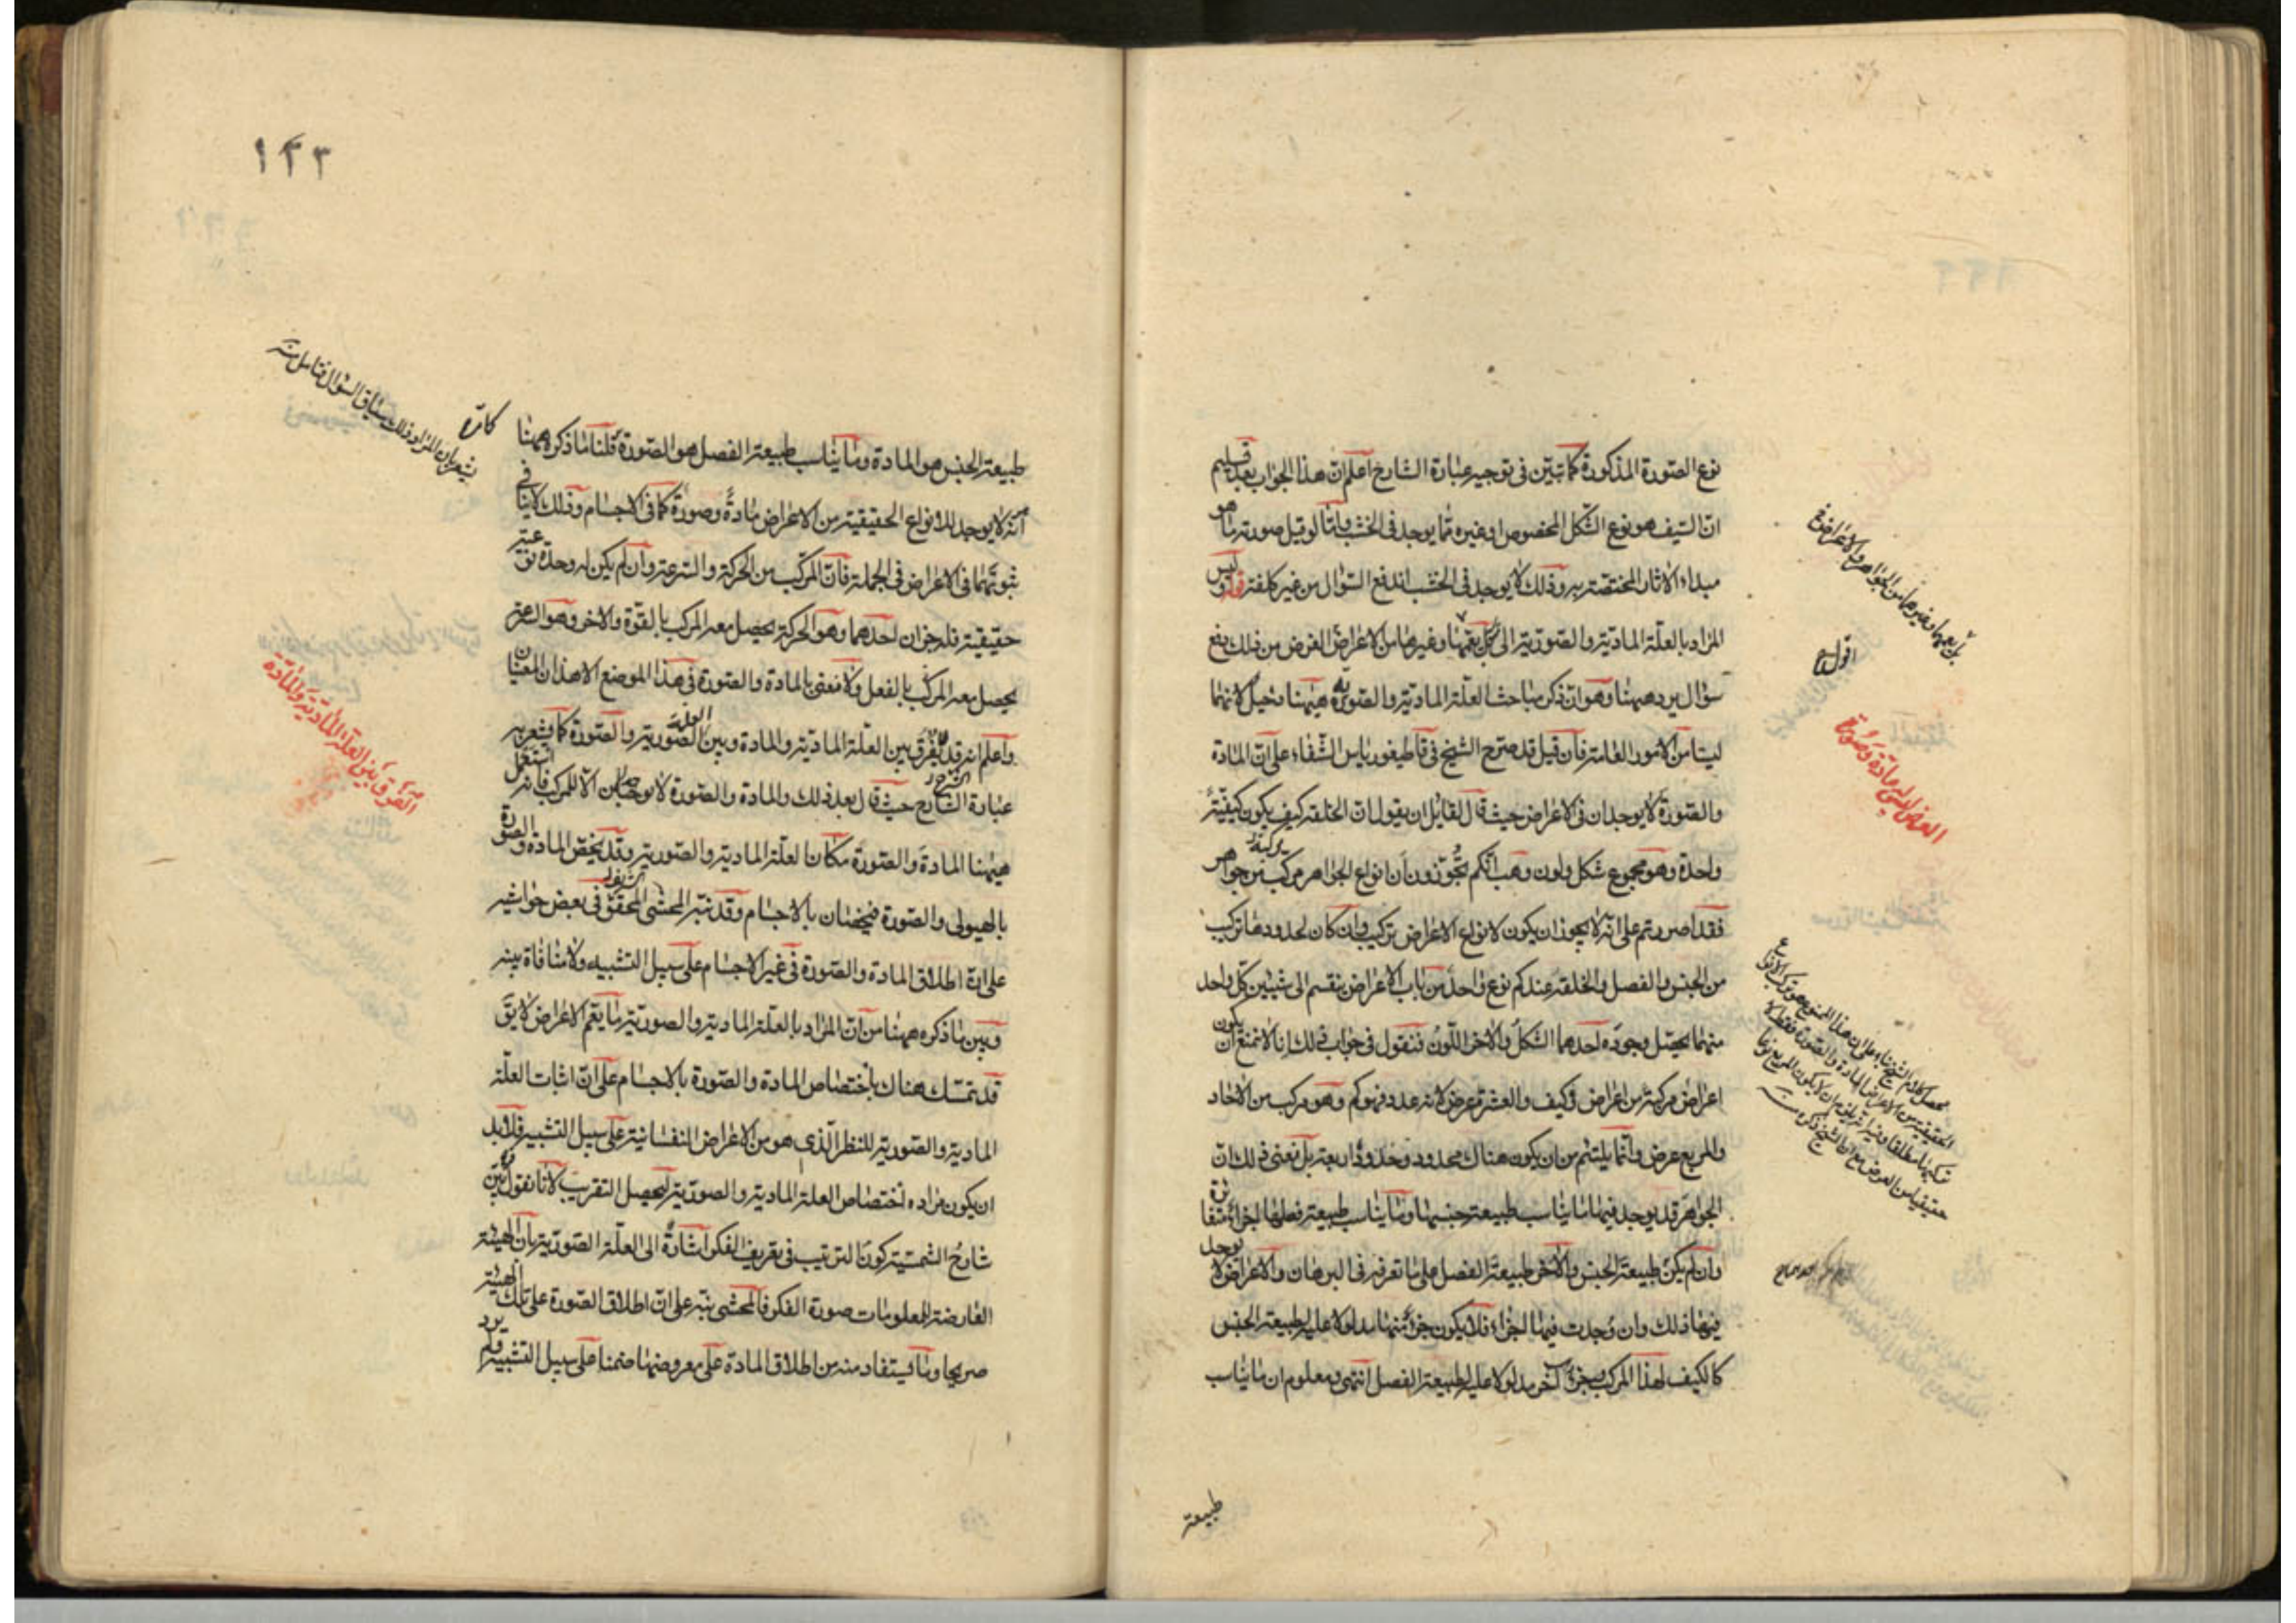 نوع الصورة المذكورة كما تبين في توجيه عبارة الشارح اعلم ان هذا الجواب بعد تسليم
ان السيف هو نوع الشكل المخصوص او غيره مما يوجد في الخشب واما لو قيل صورته ما هو
مبداء الاثار المختصة به وذلك لا يوجد في الخشب اندفع السؤال من غير كلفة قوله وليس
المراد بالعلة المادية والصورية الى بل يعمهما وغيرهما من الاعراض الغرض من ذلك دفع
سؤال يرد ههنا وهو ان ذكر مباحث العلة المادية والصورية ههنا دخيل لانهما
ليستا من الامور العامة فان قيل قد صرح الشيخ في قاطيغورياس الشفاء على ان المادة
والصورة لا يوجدان في الاعراض حيث قال لقائل ان يقول ان الخلقة كيف يكون كيفية
واحدة وهو مجموع شكل ولون وهب انكم تجوزون ان انواع الجواهر مركبة من جواهر
فقد اصررتم على انه لا يجوز ان يكون لانواع الاعراض تركيب وان كان لحدودها تركيب
من الجنس والفصل والخلقة عندكم نوع واحد من باب الاعراض ينقسم الى شيئين كل واحد
منهما يحصل وجوده احدهما الشكل والاخر اللون فنقول في جواب ذلك انا لا نمنع ان يكون
اعراض مركبة من اعراض وكيف والعشرة عرض لانه عدد فهو كم وهو مركب من الاحاد
والمربع عرض وانما يلتئم من ان يكون هناك محدود وحدود اربعة بل نعني في ذلك ان
الجواهر قد يوجد فيها ما يناسب طبيعة جنسها وما يناسب طبيعة فصلها اجزاء متفارقة
وان لم يكن طبيعة الجنس والاخر طبيعة الفصل على ما تعرفه في البرهان والاعراض لا يوجد
فيها ذلك وان وجدت فيها اجزاء فلا يكون جزء منها مدلولا عليه لطبيعة الجنس
كالكيف لهذا المركب وجزء آخر مدلولا عليه لطبيعة الفصل انتهى ومعلوم ان ما يناسب
طبيعة
بل يعمهما وغيرهما من الجواهر والاعراض
اقول
العرض ليس له مادة وصورة
١٢٣
طبيعة الجنس هو المادة وما يناسب طبيعة الفصل هو الصورة قلنا ما ذكره ههنا
انه لا يوجد للانواع الحقيقية من الاعراض مادة وصورة كما في الاجسام وذلك لا ينافي
ثبوتهما في الاعراض في الجملة فان المركب من الحركة والسرعة وان لم يكن له وحدة نوعية
حقيقية فله جزان احدهما وهو الحركة يحصل معه المركب بالقوة والاخر وهو السرعة
يحصل معه المركب بالفعل ولا نعني بالمادة والصورة في هذا الموضع الا هذان المعنيان
واعلم انه قد يفرق بين العلة المادية والمادة وبين العلة الصورية والصورة كما يشعر به
عبارة الشارح حيث قال بعد ذلك والمادة والصورة لا يوجدان الا للمركب فانه استعمل
ههنا المادة والصورة مكان العلة المادية والصورية وقد يخص المادة والصورة
بالهيولى والصورة فيختصان بالاجسام وقد نبه المحشي المحقق في بعض حواشيه
على ان اطلاق المادة والصورة في غير الاجسام على سبيل التشبيه ولا منافاة بينه
وبين ما ذكره ههنا من ان المراد بالعلة المادية والصورية ما يعم الاعراض لا يق
قد تمسك هناك باختصاص المادة والصورة بالاجسام على ان اثبات العلة
المادية والصورية للنظر الذي هو من الاعراض النفسانية على سبيل التشبيه فلا بد
ان يكون مراده اختصاص العلة المادية والصورية ليحصل التقريب لانا نقول بين
شارح الشمسية كون الترتيب في تعريف الفكر اشارة الى العلة الصورية بان الهيئة
العارضة للمعلومات صورة الفكر فالمحشي نبه على ان اطلاق الصورة على تلك الهيئة
صريحا وما يستفاد منه من اطلاق المادة على معروضها ضمنا على سبيل التشبيه ولم يرد
يشعر بان المراد ذلك سياق السؤال فتأمل منه
الفرق بين العلة المادية والمادة